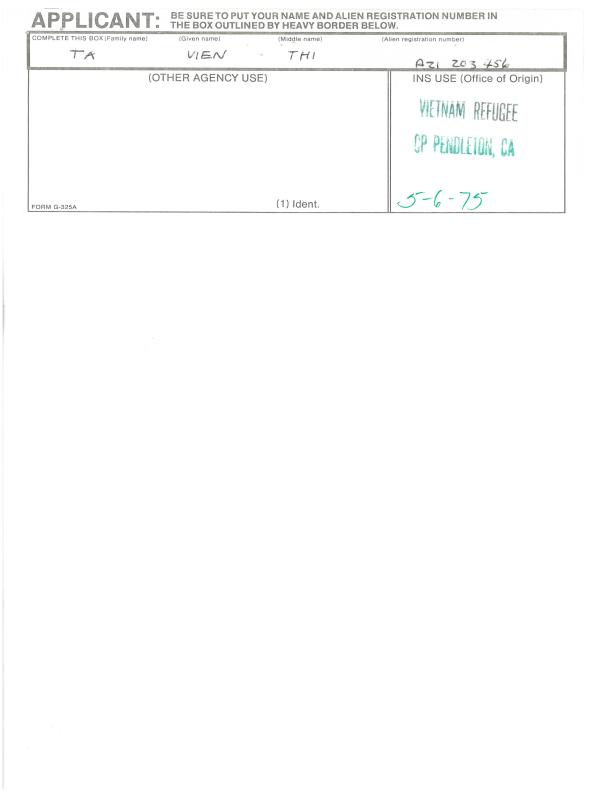 APPLICANT: BE SURE TO PUT YOUR NAME AND ALIEN REGISTRATION NUMBER IN
THE BOX OUTLINED BY HEAVY BORDER BELOW.
COMPLETE THIS BOX (Family name) (Given name) (Middle name) (Alien registration number)
TA VIEN THI A21 203 456
(OTHER AGENCY USE) INS USE (Office of Origin)
VIETNAM REFUGEE
CP PENDLETON, CA
5-6-75
FORM G-325A (1) Ident.